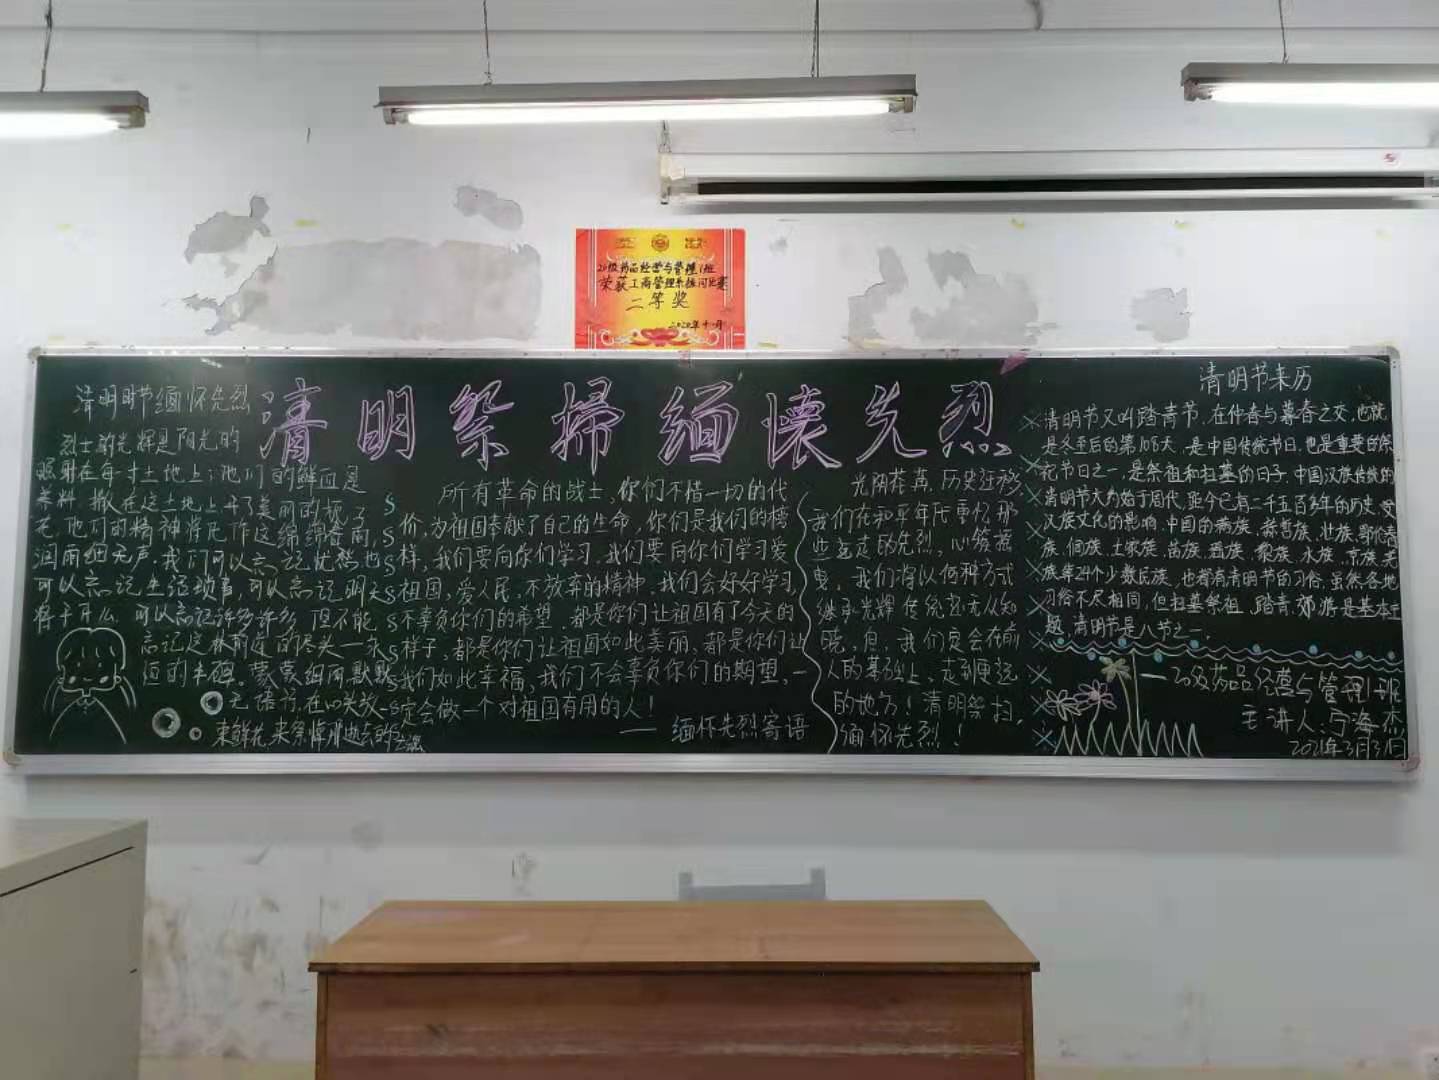 20级药品经营与管理1班
荣获工商管理系板间比赛
二等奖
2020年十一月
清明祭掃缅懷先烈
清明时节缅怀先烈
烈士的光辉是阳光的
照射在每一寸土地上；他们的鲜血是
染料，撒在这土地上开了美丽的
花，他们的精神将化作这绵绵春雨，
润雨细无声，我们可以忘记忧愁也
可以忘记生活琐事，可以忘记明天
将干什么，可以忘记许多许多，但不能
忘记这林前定的尽头一永
恒的丰碑。蒙蒙细雨默默
无语
束鲜花，来祭悼那逝去的
所有革命的战士，你们不惜一切的代
价，为祖国奉献了自己的生命，你们是我们的榜
样，我们要向你们学习，我们要向你们学习爱
祖国，爱人民，不放弃的精神，我们会好好学习
不辜负你们的希望，都是你们让祖国有了今天的
样子，都是你们让祖国如此美丽，都是你们让
我们如此幸福，我们不会辜负你们的期望，一
定会做一个对祖国有用的人！
——缅怀先烈寄语
光阴荏苒，历史迁移，
我们在和平年代重忆那
些逝走的先烈，心篌
我们将以何种方式
继承光辉传统也无从知
晓，但，我们定会在前
人的基础上，走到更远
的地方！清明祭扫，
缅怀先烈！
清明节来历
清明节又叫踏青节，在仲春与暮春之交，也就
是冬至后的第108天，是中国传统节日，也是重要的祭
祀节日之一，是祭祖和扫墓的日子。中国汉族传统的
清明节大为始于周代，距今已有二千五百多年的历史，受
汉族文化的影响，中国的满族、赫哲族、壮族、鄂伦春
族、侗族、土家族、苗族、瑶族、黎族、水族、京族、羌
族等24个少数民族，也都有清明节的习俗，虽然各地
习俗不尽相同，但扫墓祭祖、踏青郊游是基本主
题，清明节是八节之一。
——20级药品经营与管理1班
主讲人：宁海杰
2021年3月31日